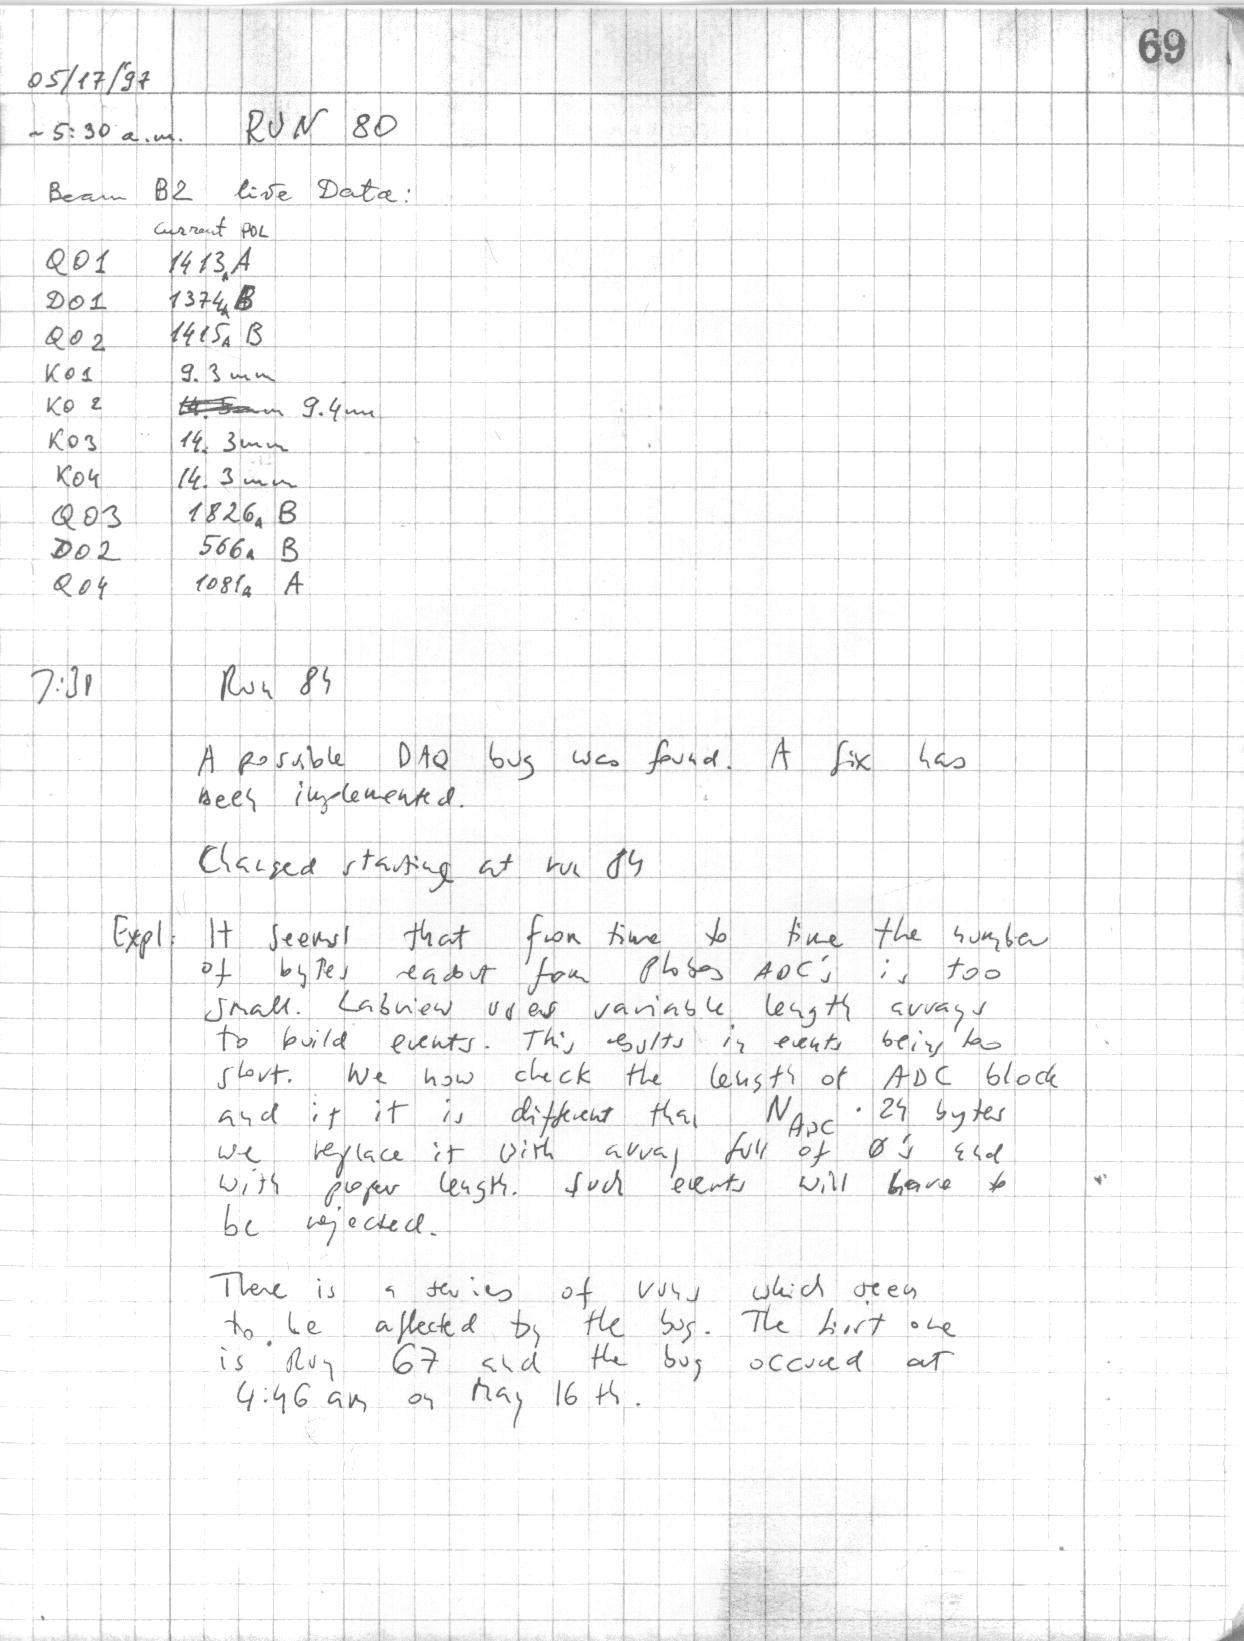 69
05/17/97
~5:30 a.m. RUN 80
Beam B2 live Data:
current POL
Q01 1413A A
D01 1374A B
Q02 1415A B
K01 9.3mm
K02 9.4mm
K03 14.3mm
K04 14.3mm
Q03 1826A B
D02 566A B
Q04 1081A A
7:31 Run 84
A possible DAQ bug was found. A fix has
been implemented.
Changed starting at run 84
Expl: It seems that from time to time the number
of bytes readout from Phobos ADC's is too
small. Labview uses variable length arrays
to build events. This results in events being too
short. We now check the length of ADC block
and if it is different than N_ADC · 24 bytes
we replace it with array full of 0's and
with proper length. Such events will have to
be rejected.
There is a series of runs which seem
to be affected by the bug. The first one
is Run 67 and the bug occured at
4:46 am on May 16th.